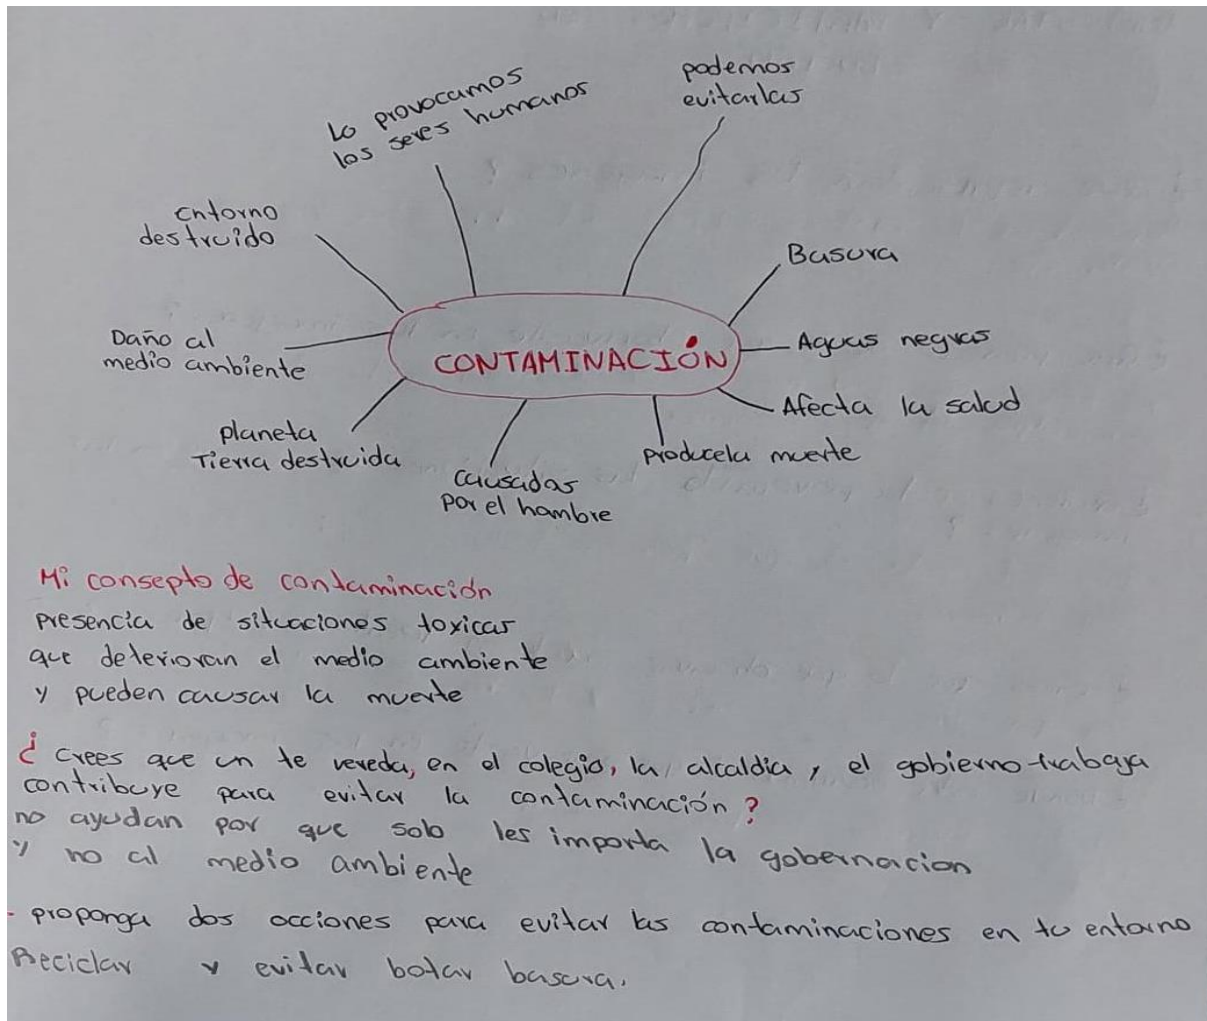 Lo provocamos
los seres humanos
podemos
evitarlas
Entorno
destruido
Basura
Daño al
medio ambiente
CONTAMINACIÓN
Aguas negras
Afecta la salud
planeta
Tierra destruida
producela muerte
causadas
por el hambre
Mi consepto de contaminación
presencia de situaciones toxicas
que deterioran el medio ambiente
y pueden causar la muerte
¿ crees que en te vereda, en el colegio, la alcaldia, el gobierno trabaja
contribuye para evitar la contaminación?
no ayudan por que solo les importa la gobernacion
y no al medio ambiente
- proponga dos acciones para evitar las contaminaciones en tu entorno
Reciclar y evitar botar basura.